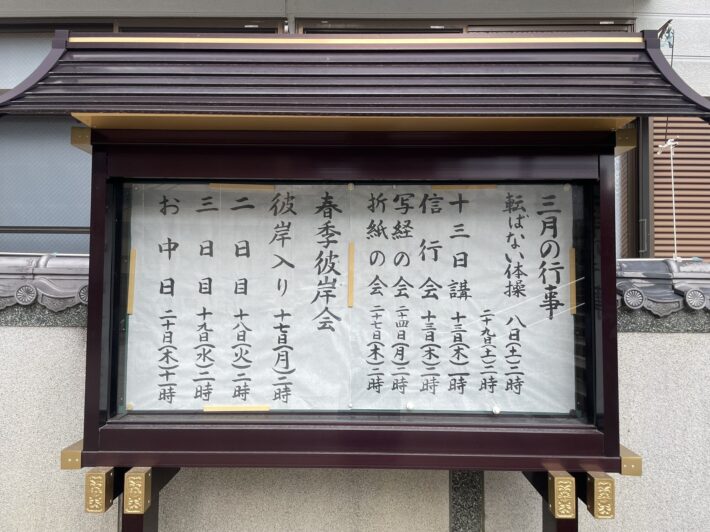 三月の行事
転ばない体操 八日(土)二時
二十九日(土)二時
十三日講 十三日(木)一時
信行会 十三日(木)二時
写経の会 二十四日(月)二時
折紙の会 二十七日(木)二時
春季彼岸会
彼岸入り 十七日(月)二時
二日目 十八日(火)二時
三日目 十九日(水)二時
お中日 二十日(木)十一時